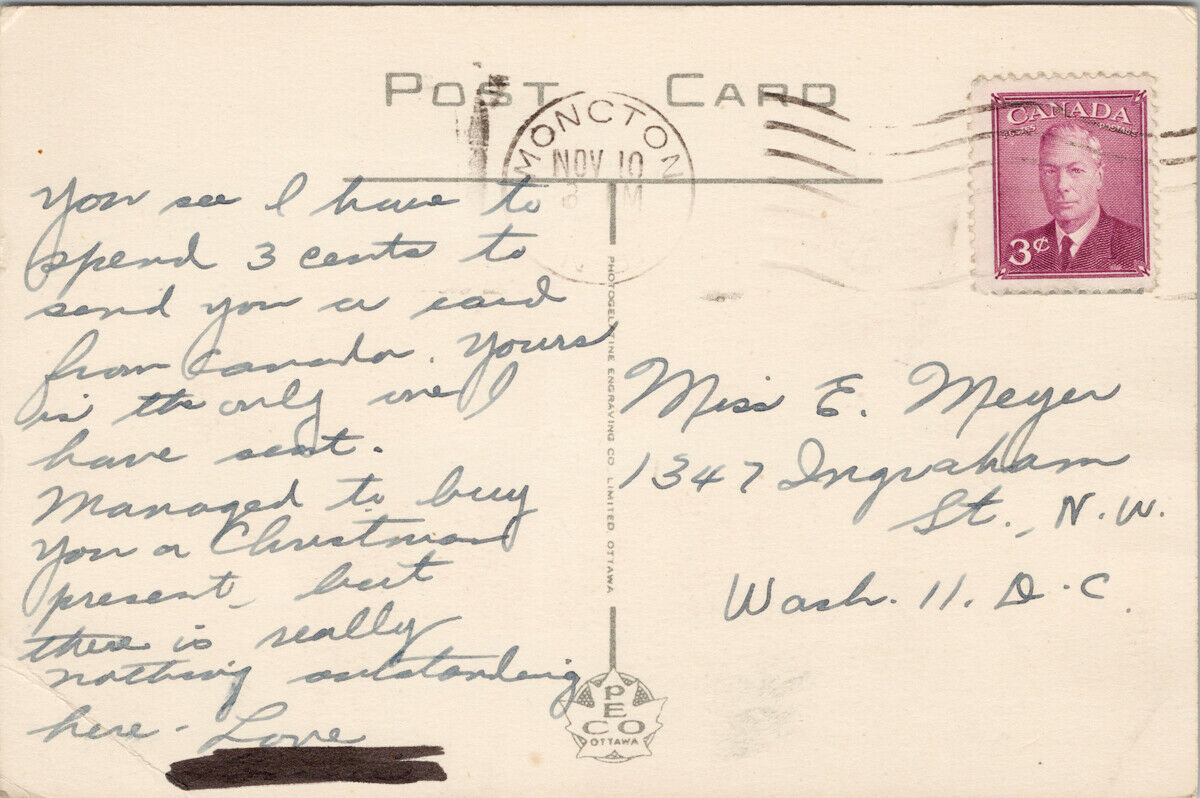 POST CARD
MONCTON
NOV 10
M
CANADA
3¢
You see I have to
spend 3 cents to
send you a card
from Canada. Yours
is the only one I
have sent.
Managed to buy
you a Christmas
present, but
there is really
nothing outstanding
here - Love
PHOTOGELATINE ENGRAVING CO LIMITED OTTAWA
Miss E. Meyer
1347 Ingraham
St., N.W.
Wash. 11. D.C.
PECO
OTTAWA